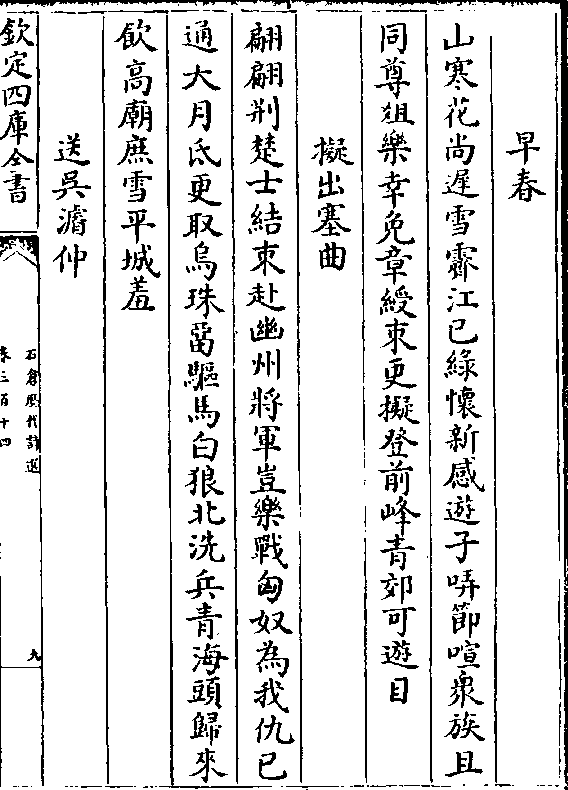 早春
山寒花尚遲雪霽江已綠懷新感遊子哢節喧衆族且
同尊俎樂幸免章綬束更擬登前峰青郊可遊目
擬出塞曲
翩翩荆楚士結束赴幽州將軍豈樂戰匈奴為我仇已
通大月氐更取烏珠畱驅馬白狼北洗兵青海頭歸來
飲高廟庶雪平城羞
送吳濳仲
欽定四庫全書
石倉歷代詩選
卷三百十四
九